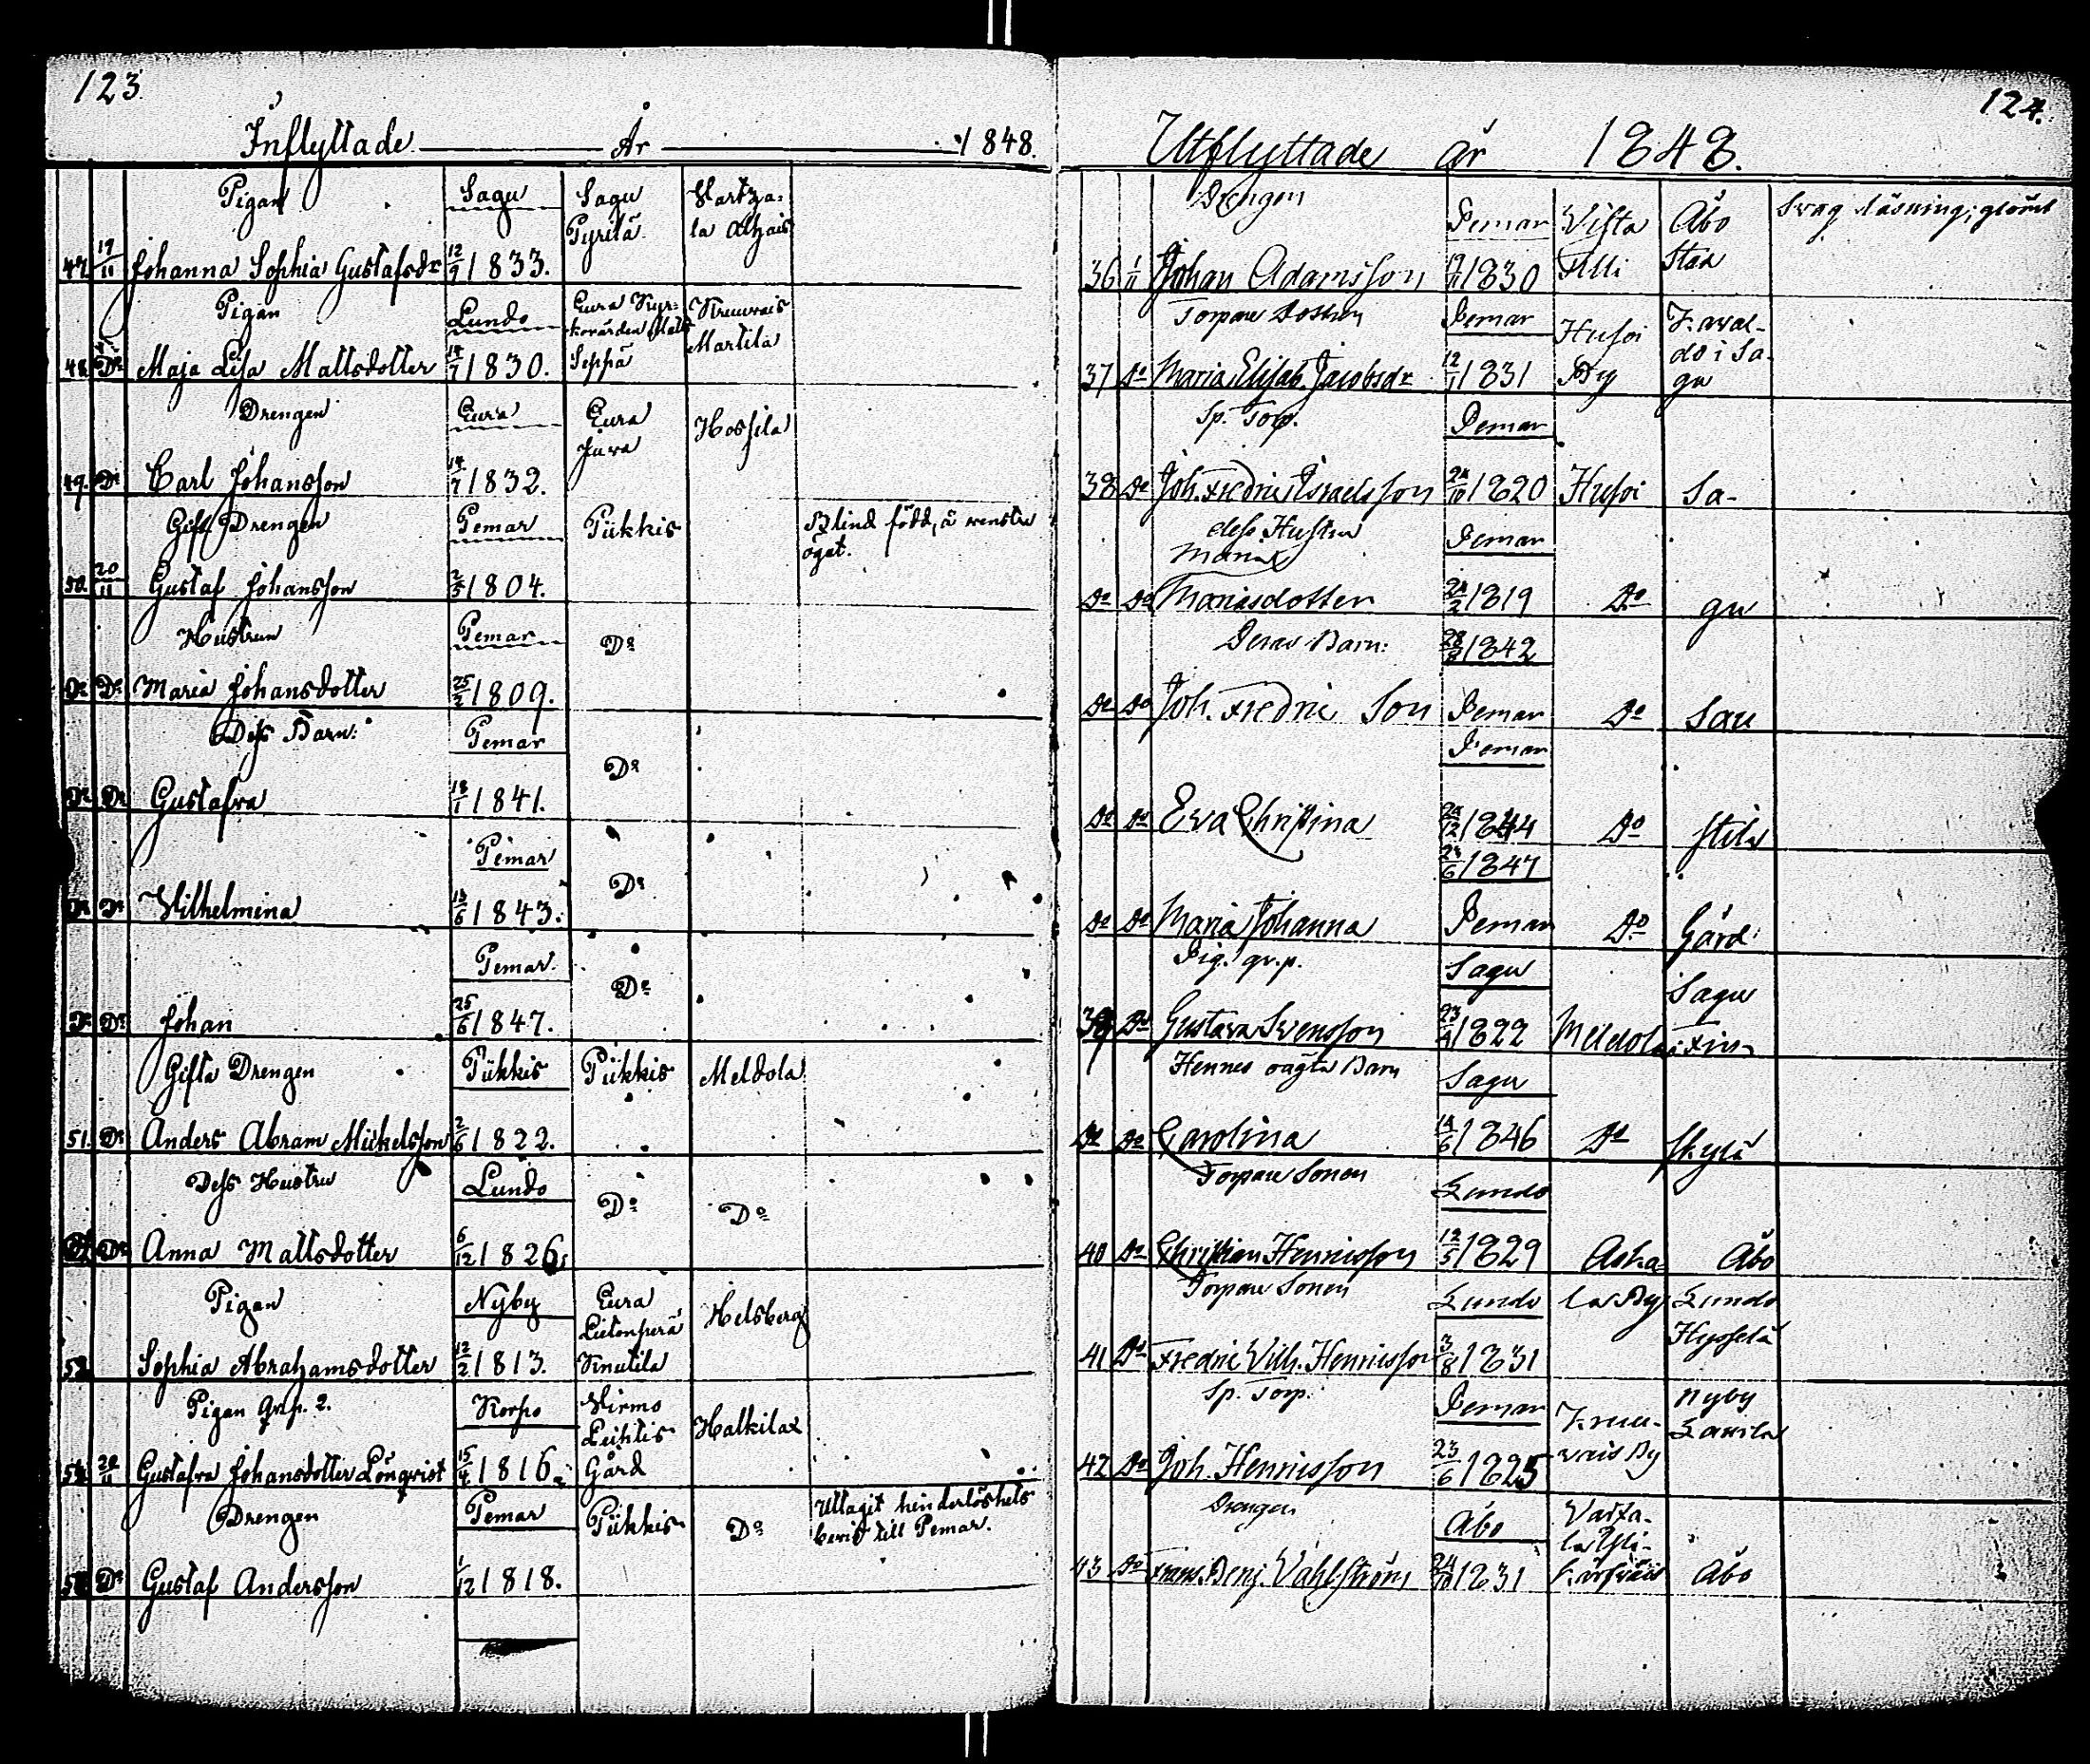 123
Inflyttade År 1848.
Pigan Sagu Sagu Vartsa-
Pyrilä la Alhais
47. 19/11 Johanna Sophia Gustafsdr 12/9 1833.
Pigan Lundo Eura Kyr- Kreuvais
kovärden Matts Martila
48. Do Maja Lisa Mattsdotter 14/7 1830. Seppä
Drengen Eura Eura Hossila
Juva
49. Do Carl Johansson 14/7 1832.
Gift Drengen Pemar Piikkis Blind född, å venstra
öget.
50. 20/11 Gustaf Johansson 2/5 1804.
Hustrun Pemar Do
Do Do Maria Johansdotter 25/2 1809.
Dess Barn: Pemar
Do
Do Do Gustafva 18/1 1841.
Pemar
Do
Do Do Wilhelmina 13/6 1843.
Pemar
Do
Do Do Johan 25/6 1847.
Gifta Drengen Piikkis Piikkis Meldola
51. Do Anders Abram Mickelsson 2/6 1822.
Dess Hustru Lundo Do Do
Do Anna Mattsdotter 6/12 1826.
Pigan Nyby Eura Helsberg
Lietonperä
53 Sophia Abrahamsdotter 12/2 1813. Knutila
Pigan Grp. 2. Korpo Virmo Halkilax
Leihtis
54. Gustafva Johansdotter Lönqvist 15/4 1816. Gård
Drengen Pemar Piikkis Do Uttagit hinderlöshets
bevis till Pemar.
Do Gustaf Andersson 1/12 1818.
124.
Utflyttade år 1848.
Drengen Pemar Vista Åbo Svag läsning; glömt
36 1/11 Johan Adamsson 1830 Alli Stad
Torpare Dottren Pemar Husoi Kaval-
do i Sa-
37 Do Maria Elisab. Jacobsdr 12/1 1831 By gu
Sp. Torp. Pemar
38 Do Joh. Fredric Israelsson 24/10 1820 Husoi Sa-
dess Hustru Pemar
Maria
Do Do Mariasdotter 24/2 1819 Do gu
Deras Barn: 28/8 1842
Do Do Joh. Fredric Son Pemar Do Sau
Pemar
Do Do Eva Christina 1844 Do stila
1847
Do Do Maria Johanna Pemar Do Gård
Pig. gr. p. Sagu Sagu
39 Do Gustava Svensson 23/4 1822 Meldola Fin-
Hennes oägta Barn Sagu
Do Do Carolina 14/6 1846 Do skylä
Torpare Sonen Lundo
40 Do Christian Henricsson 12/5 1829 Aska- Åbo
Torpare Sonen Lundo la By Lundo
Hysselä
41 Do Fredric Vilh. Henricsson 3/8 1831
Sp. Torp. Pemar Kreu- Nyby
Lavila
42 Do Joh. Henricsson 23/6 1825 vais By
Drengen Åbo Vasta-
43 Do Frans. Benj. Vahlström 24/10 1831 Åbo